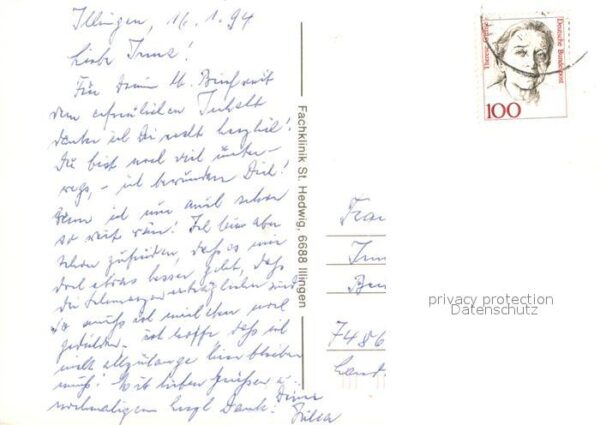 Illingen, 16.1.94
Liebe Irma!
Für Deinen lb. Brief mit
dem erfreulichen Inhalt
danke ich Dir recht herzlich!
Du bist noch viel unter-
wegs, - ich bewundere Dich!
Wenn ich nur auch schon
so weit wäre! Ich bin aber
schon zufrieden, daß es mir
doch etwas besser geht, daß
die Schmerzen erträglicher sind
So muß ich mich eben noch
gedulden. ich hoffe daß ich
nicht allzulange hier bleiben
muß! Mit lieben Grüßen u.
nochmaligem herzl Dank. Deine
Fachklinik St. Hedwig, 6688 Illingen
Deutsche Bundespost
Therese
100
Frau
7486
privacy protection
Datenschutz